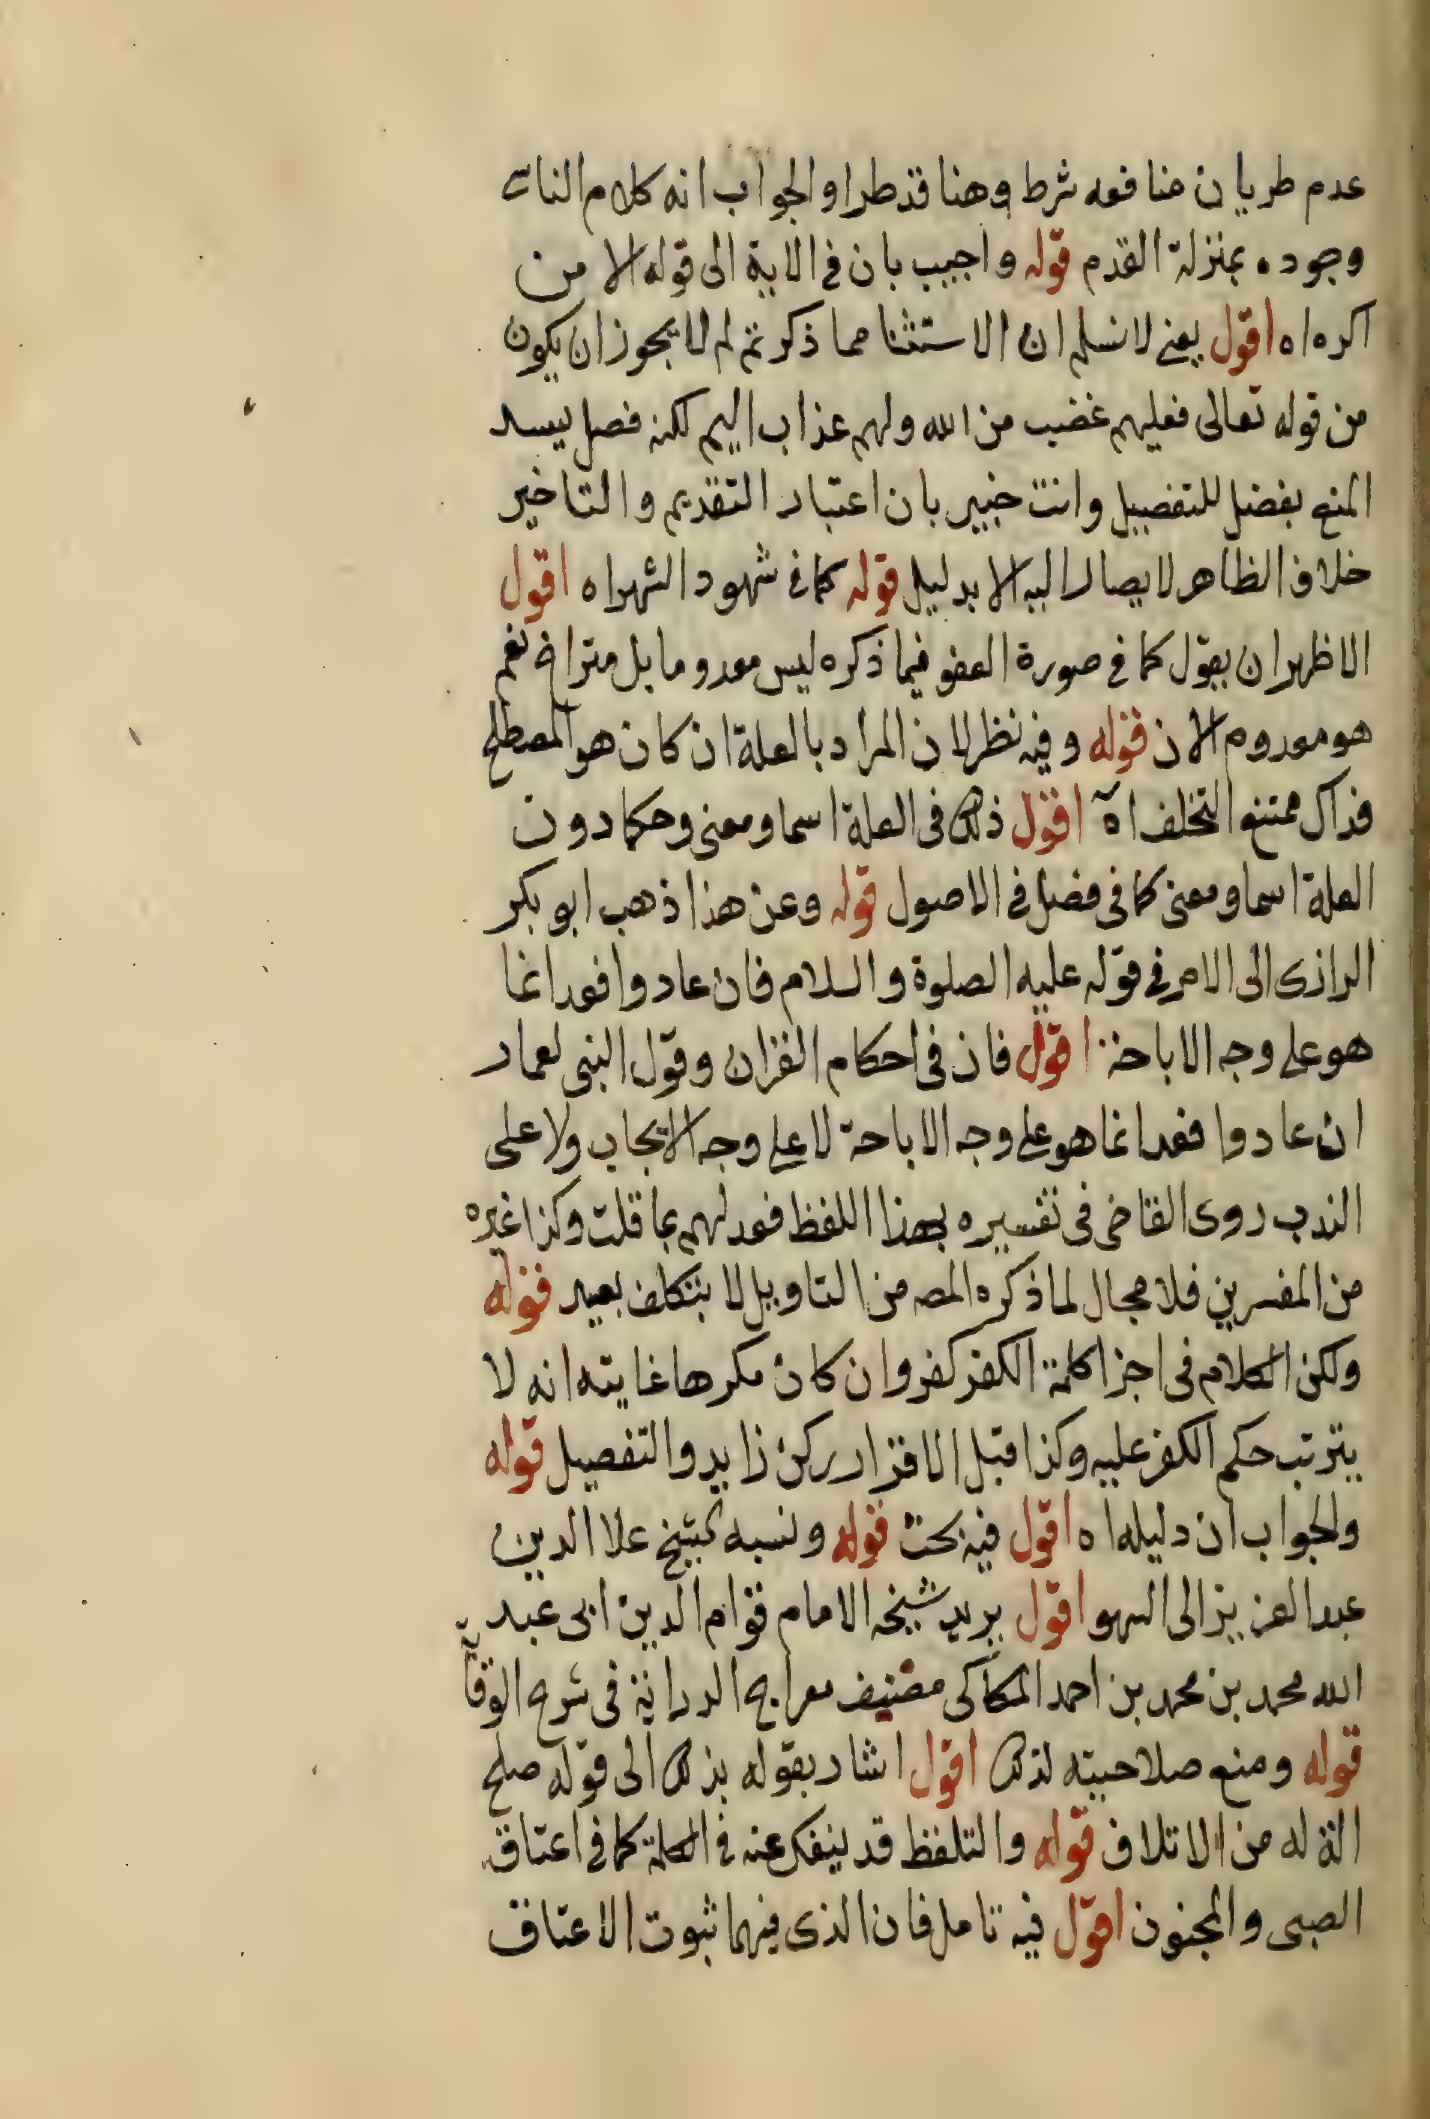 عدم طريان منافعه شرط وهنا قد طرا والجواب انه كلام الناس
وجوده بمنزلة القدم قوله واجيب بان في الاية الى قوله الا من
اكره اه اقول يعني لا نسلم ان الاستثنا مما ذكر ثم لم لا يجوز ان يكون
من قوله تعالى فعليهم غضب من الله ولهم عذاب اليم لكنه فصل ليسد
المنع بفضل للتفصيل وانت خبير بان اعتبار التقديم والتاخير
خلاف الظاهر لا يصار اليه الا بدليل قوله كما في شهود الشهر اه اقول
الاظهر ان يقول كما في صورة العفو فيما ذكره ليس معدوما بل متراخ نعم
هو معدوم الان قوله وفيه نظر لان المراد بالعلة ان كان هو المصطلح
فذاك ممتنع التخلف اه اقول ذلك في العلة اسما ومعنى وحكما دون
العلة اسما ومعنى كما في فصل في الاصول قوله وعن هذا ذهب ابو بكر
الرازى الى الامر في قوله عليه الصلوة والسلام فان عادوا فعد انما
هو على وجه الاباحة اقول فان في احكام القران وقول النبى لعمار
ان عادوا فعد انما هو على وجه الاباحة لا على وجه الايجاب ولا على
الندب روى القاضى فى تفسيره بهذا اللفظ فعد لهم بما قلت وكذا غيره
من المفسرين فلا مجال لما ذكره المصـ من التاويل الا بتكلف بعيد قوله
ولكن الكلام فى اجرا كلمة الكفر كفر وان كان مكرها غايته انه لا
يترتب حكم الكفر عليه وكذا قبل الاقرار ركن زايد والتفصيل قوله
والجواب ان دليله اه اقول فيه بحث قوله ونسبه لشيخ علا الدين
عبد العزيز الى السهو اقول يريد شيخه الامام قوام الدين ابى عبد
الله محمد بن محمد بن احمد الكاكى مصنف معراج الدراية فى شرح الوقا
قوله ومنع صلاحيته لذلك اقول اشار بقوله بذلك الى قوله صلح
الة له من الاتلاف قوله والتلفظ قد ينفك عنه في الجملة كما في اعتاق
الصبى والمجنون اقول فيه تامل فان الذى فيهما ثبوت الاعتاق